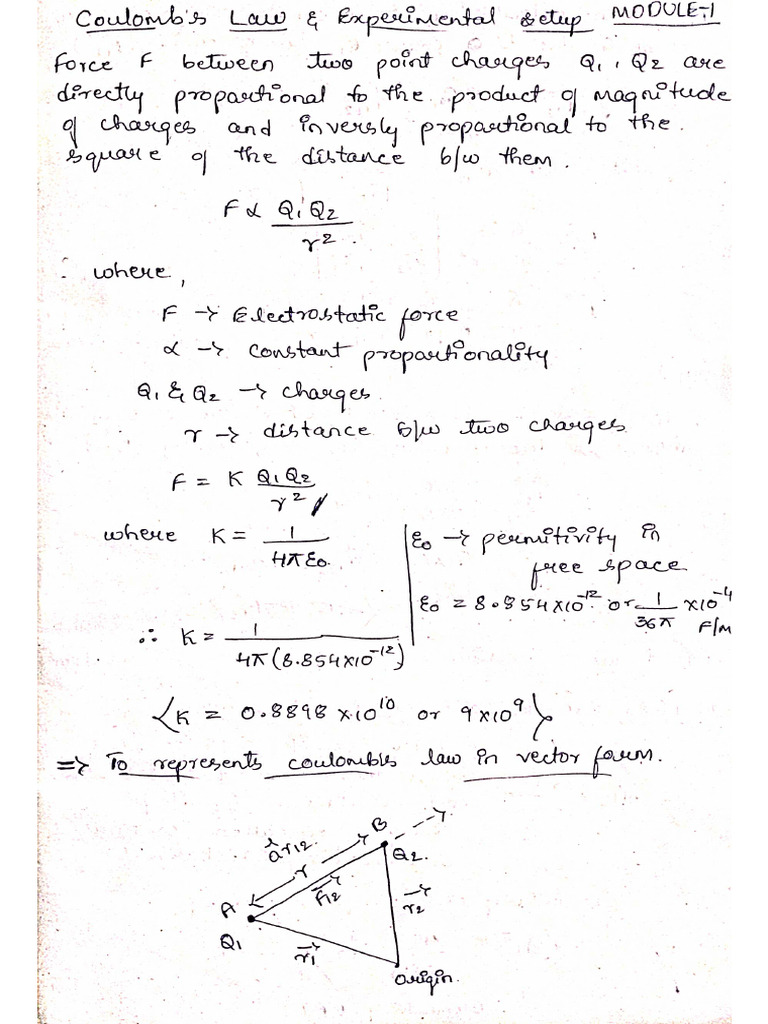 Coulomb's Law & Experimental setup MODULE-1
Force F between two point charges Q1, Q2 are
directly propartional to the product of magnitude
of charges and inversly propartional to the
square of the distance b/w them.
F ∝ Q1 Q2 / r²
∴ where,
F → Electrostatic force
∝ → constant propartionality
Q1 & Q2 → charges
r → distance b/w two charges
F = K Q1 Q2 / r²
where K = 1 / 4πε0
ε0 → permitivity in
free space
ε0 = 8.854×10⁻¹² or 1/36π ×10⁻⁴ F/M
∴ K = 1 / 4π(8.854×10⁻¹²)
K = 0.8898×10¹⁰ or 9×10⁹
⇒ To represents coulomb's law in vector form.
B
âr12
r
Q2.
F⃗12
A
r⃗2
Q1
r⃗1
origin.